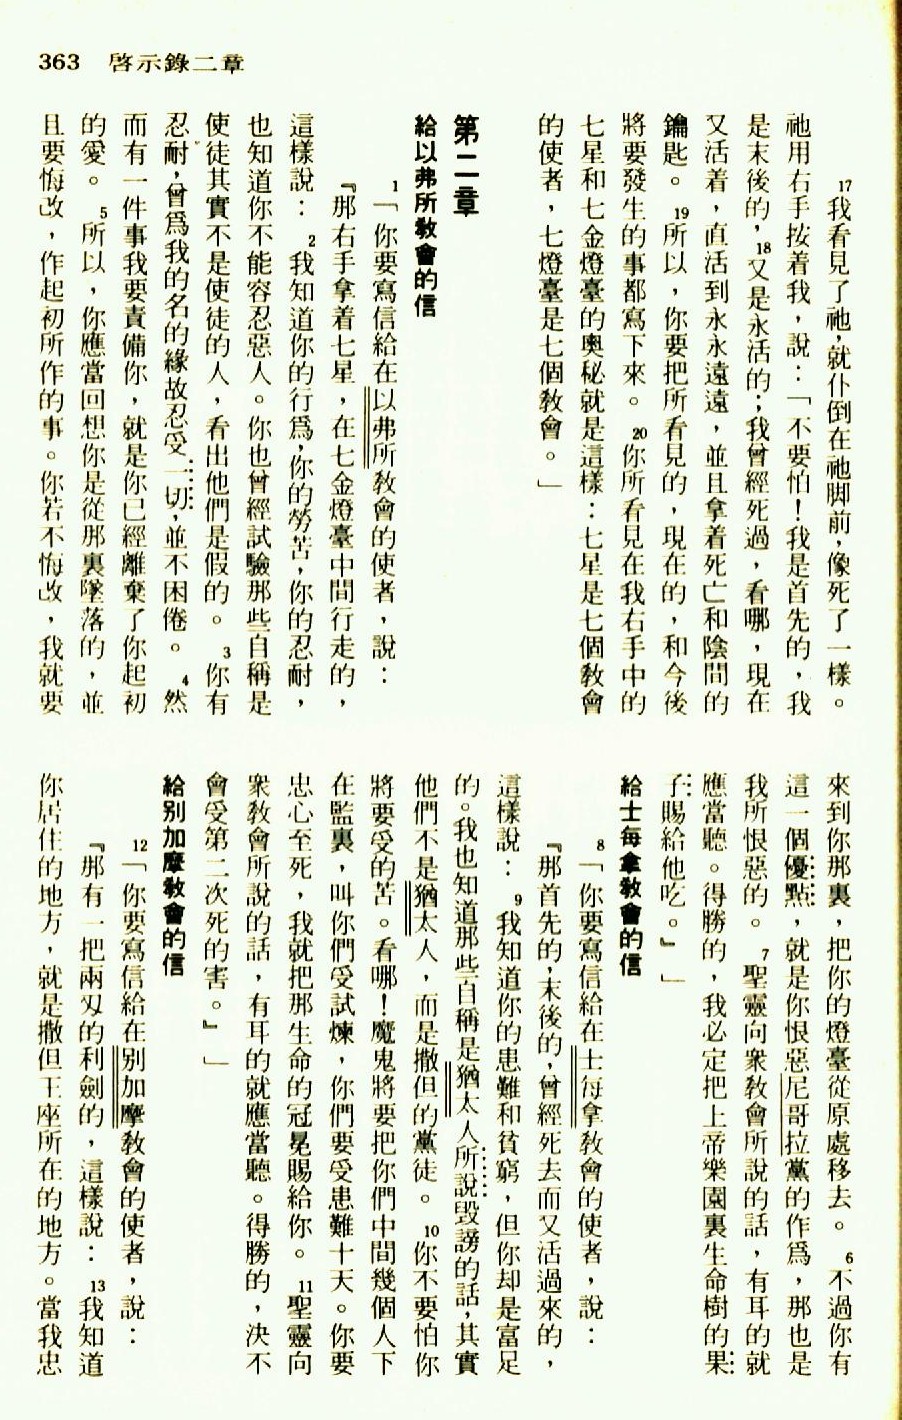 363 啓示錄二章
17我看見了祂，就仆倒在祂脚前，像死了一樣。
祂用右手按着我，說：「不要怕！我是首先的，我
是末後的，18又是永活的；我曾經死過，看哪，現在
又活着，直活到永永遠遠，並且拿着死亡和陰間的
鑰匙。19所以，你要把所看見的，現在的，和今後
將要發生的事都寫下來。20你所看見在我右手中的
七星和七金燈臺的奧秘就是這樣：七星是七個教會
的使者，七燈臺是七個教會。」
第二章
給以弗所教會的信
1「你要寫信給在以弗所教會的使者，說：
『那右手拿着七星，在七金燈臺中間行走的，
這樣說：2我知道你的行爲，你的勞苦，你的忍耐，
也知道你不能容忍惡人。你也曾經試驗那些自稱是
使徒其實不是使徒的人，看出他們是假的。3你有
忍耐，曾爲我的名的緣故忍受一切，並不困倦。4然
而有一件事我要責備你，就是你已經離棄了你起初
的愛。5所以，你應當回想你是從那裏墜落的，並
且要悔改，作起初所作的事。你若不悔改，我就要
來到你那裏，把你的燈臺從原處移去。6不過你有
這一個優點，就是你恨惡尼哥拉黨的作爲，那也是
我所恨惡的。7聖靈向衆教會所說的話，有耳的就
應當聽。得勝的，我必定把上帝樂園裏生命樹的果
子賜給他吃。』」
給士每拿教會的信
8「你要寫信給在士每拿教會的使者，說：
『那首先的，末後的，曾經死去而又活過來的，
這樣說：9我知道你的患難和貧窮，但你却是富足
的。我也知道那些自稱是猶太人所說毀謗的話，其實
他們不是猶太人，而是撒但的黨徒。10你不要怕你
將要受的苦。看哪！魔鬼將要把你們中間幾個人下
在監裏，叫你們受試煉，你們要受患難十天。你要
忠心至死，我就把那生命的冠冕賜給你。11聖靈向
衆教會所說的話，有耳的就應當聽。得勝的，決不
會受第二次死的害。』」
給别加摩教會的信
12「你要寫信給在别加摩教會的使者，說：
『那有一把兩刄的利劍的，這樣說：13我知道
你居住的地方，就是撒但王座所在的地方。當我忠